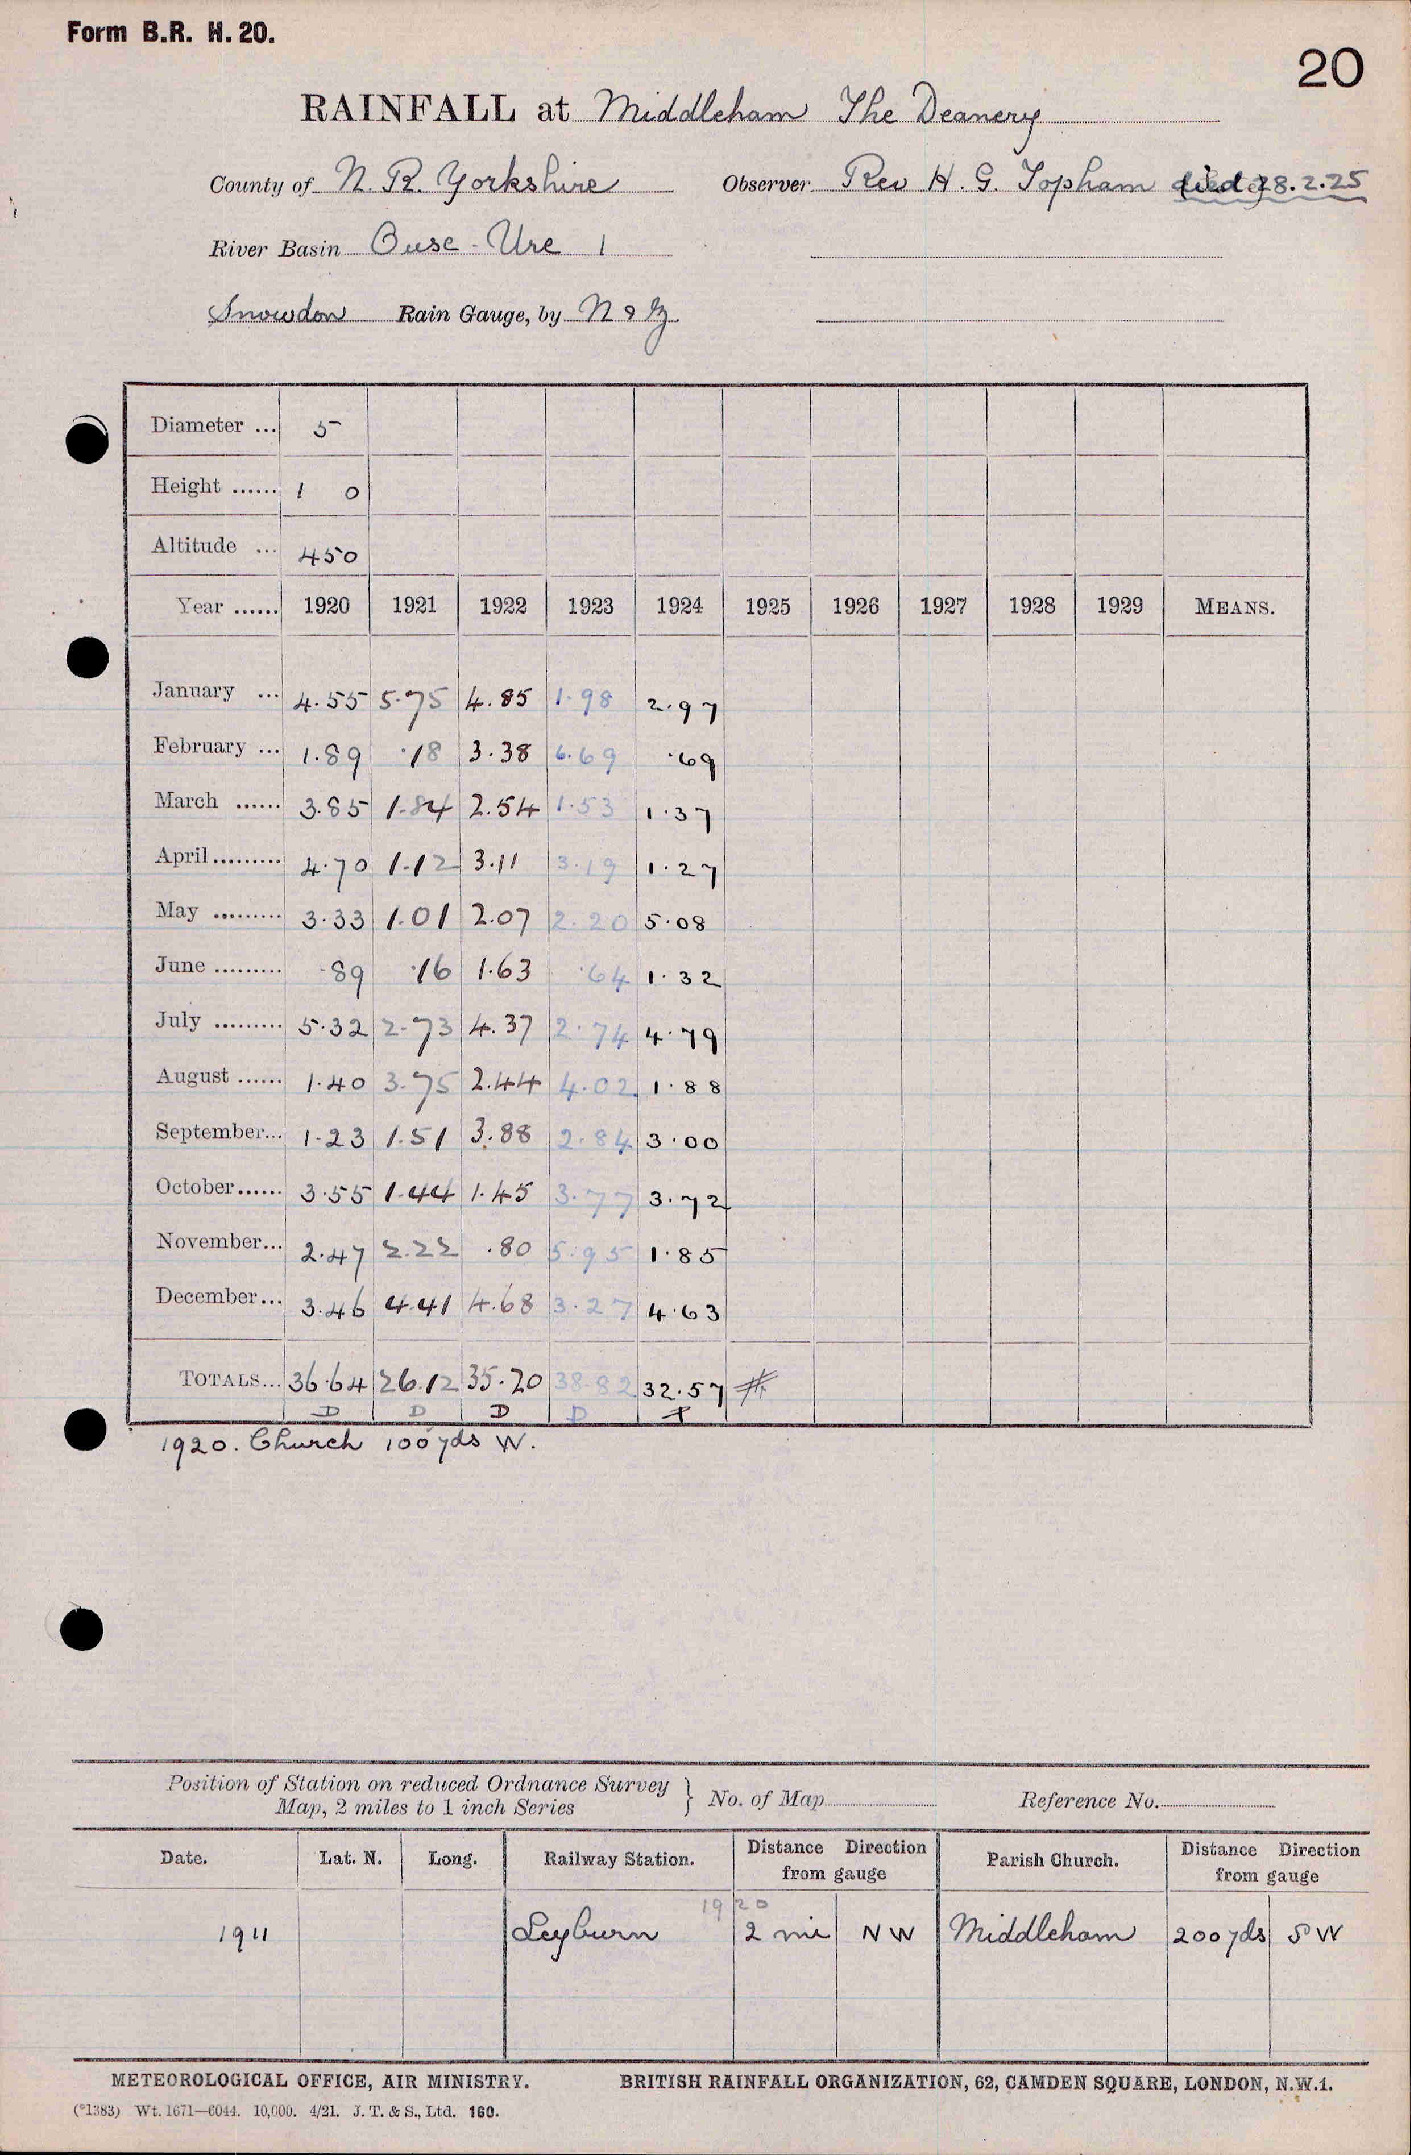 Form B.R. H. 20.
20
RAINFALL at Middleham The Deanery
County of N. R. Yorkshire Observer Rev H. G. Topham died 28.2.25
River Basin Ouse - Ure 1
Snowdon Rain Gauge, by N & Z
Diameter ... 5
Height ...... 1 0
Altitude ... 450
Year ...... 1920 1921 1922 1923 1924 1925 1926 1927 1928 1929 MEANS.
January ... 4.55 5.75 4.85 1.98 2.97
February ... 1.89 .18 3.38 6.69 .69
March ...... 3.85 1.84 2.54 1.53 1.37
April ......... 4.70 1.12 3.11 3.19 1.27
May ......... 3.33 1.01 2.07 2.20 5.08
June ......... .89 .16 1.63 .64 1.32
July ......... 5.32 2.73 4.37 2.74 4.79
August ...... 1.40 3.75 2.44 4.02 1.88
September... 1.23 1.51 3.88 2.84 3.00
October...... 3.55 1.44 1.45 3.77 3.72
November... 2.47 2.22 .80 5.95 1.85
December... 3.46 4.41 4.68 3.27 4.63
TOTALS... 36.64 26.12 35.20 38.82 32.57
D D D D
1920. Church 100 yds W.
Position of Station on reduced Ordnance Survey
Map, 2 miles to 1 inch Series } No. of Map Reference No.
Date. Lat. N. Long. Railway Station. Distance Direction from gauge Parish Church. Distance Direction from gauge
1920
1911 Leyburn 2 mi NW Middleham 200 yds SW
METEOROLOGICAL OFFICE, AIR MINISTRY. BRITISH RAINFALL ORGANIZATION, 62, CAMDEN SQUARE, LONDON, N.W.1.
(*1383) Wt. 1671—6044. 10,000. 4/21. J. T. & S., Ltd. 160.